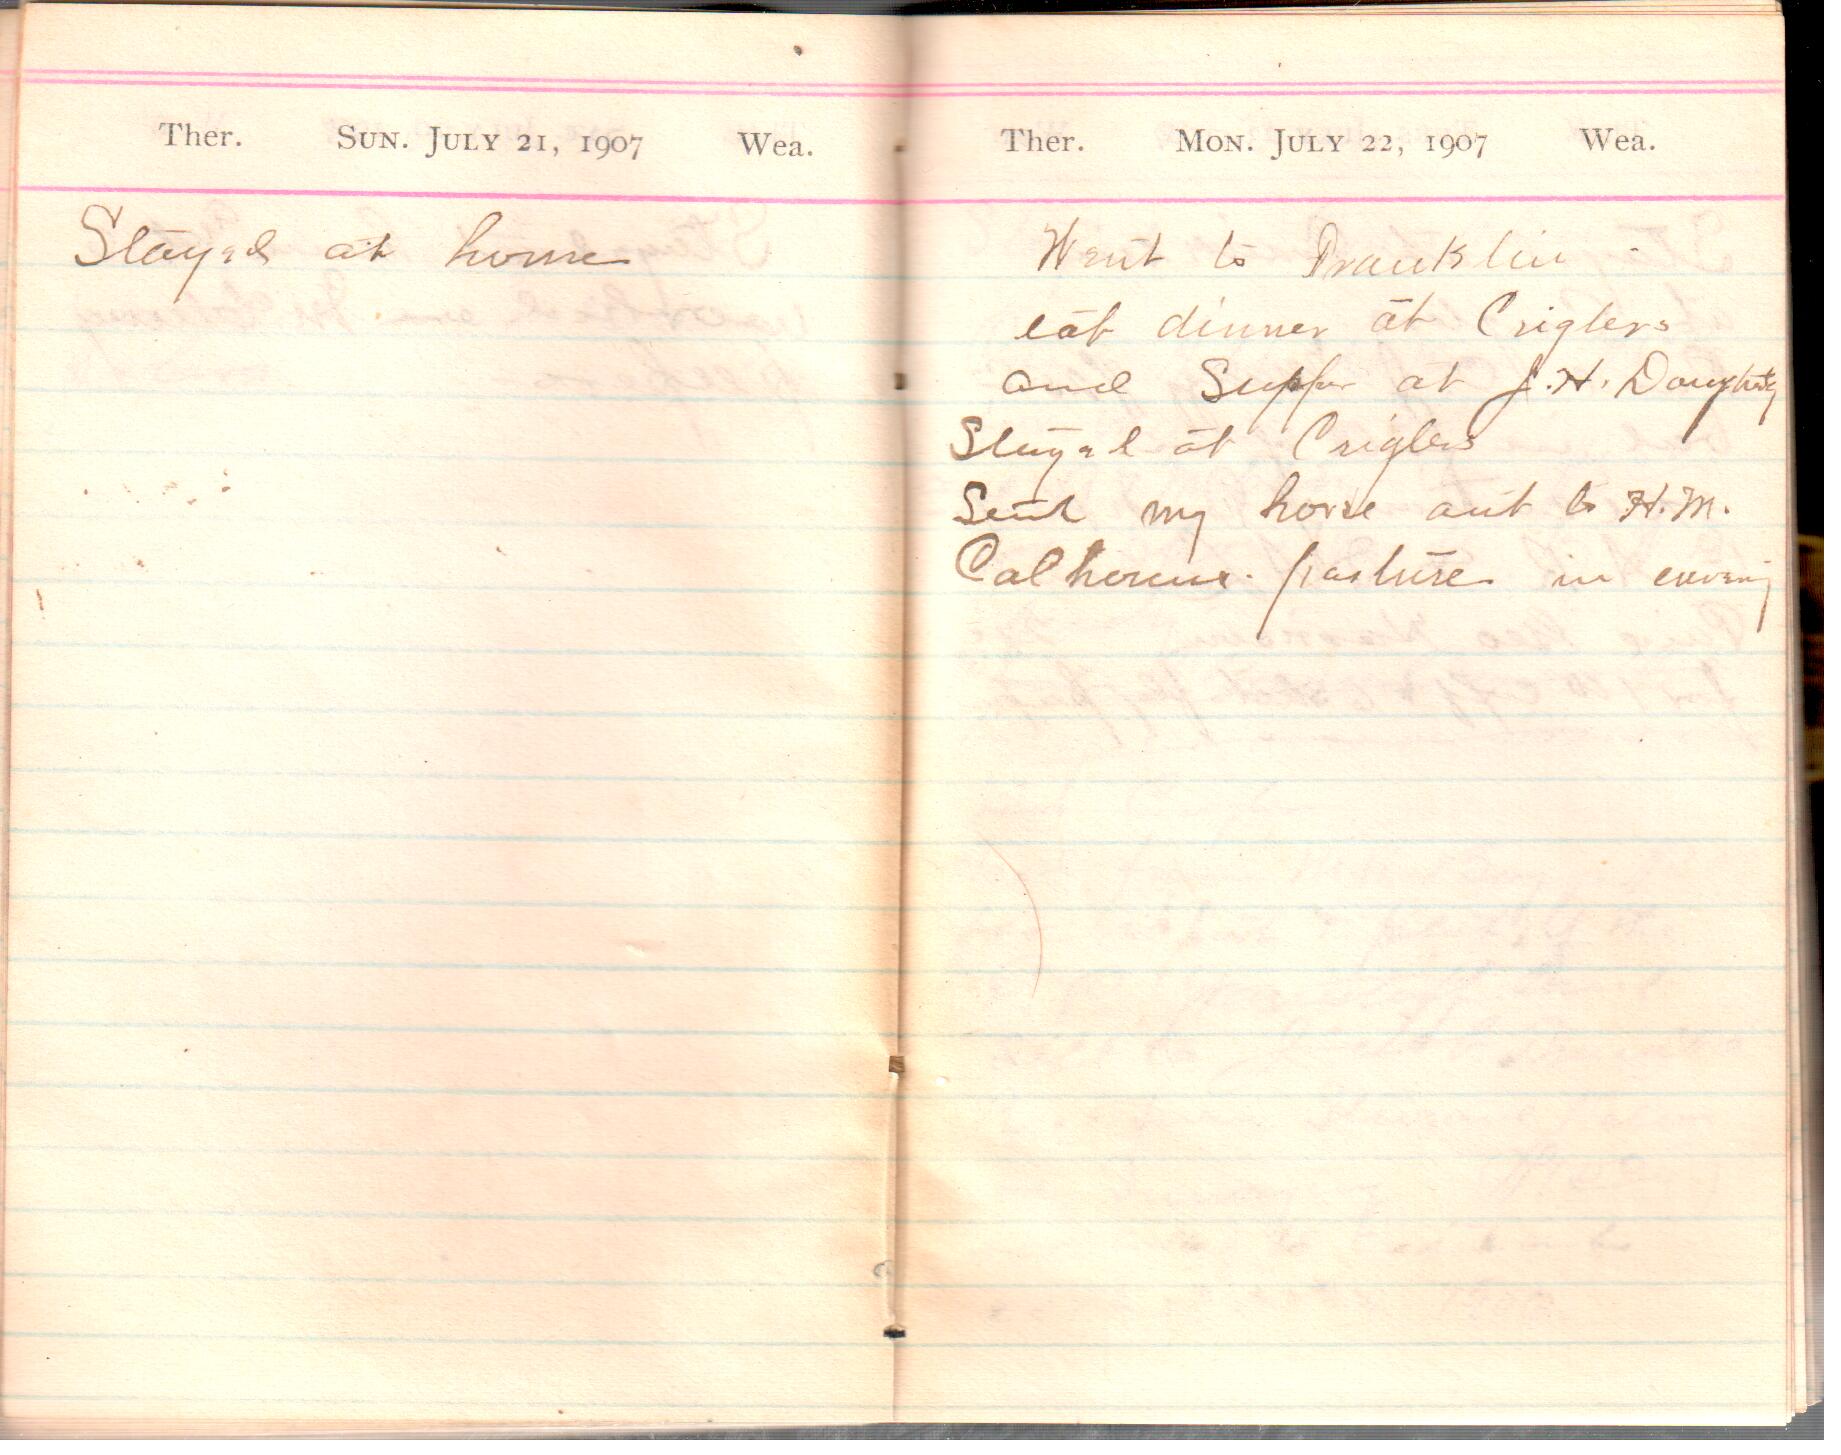 Ther. Sun. July 21, 1907 Wea.
Stayed at home
Ther. Mon. July 22, 1907 Wea.
Went to Franklin
eat dinner at Criglers
and Supper at J.H. Doughty
Stayed at Criglers
Sent my horse out to H.M.
Calhouns pasture in evening